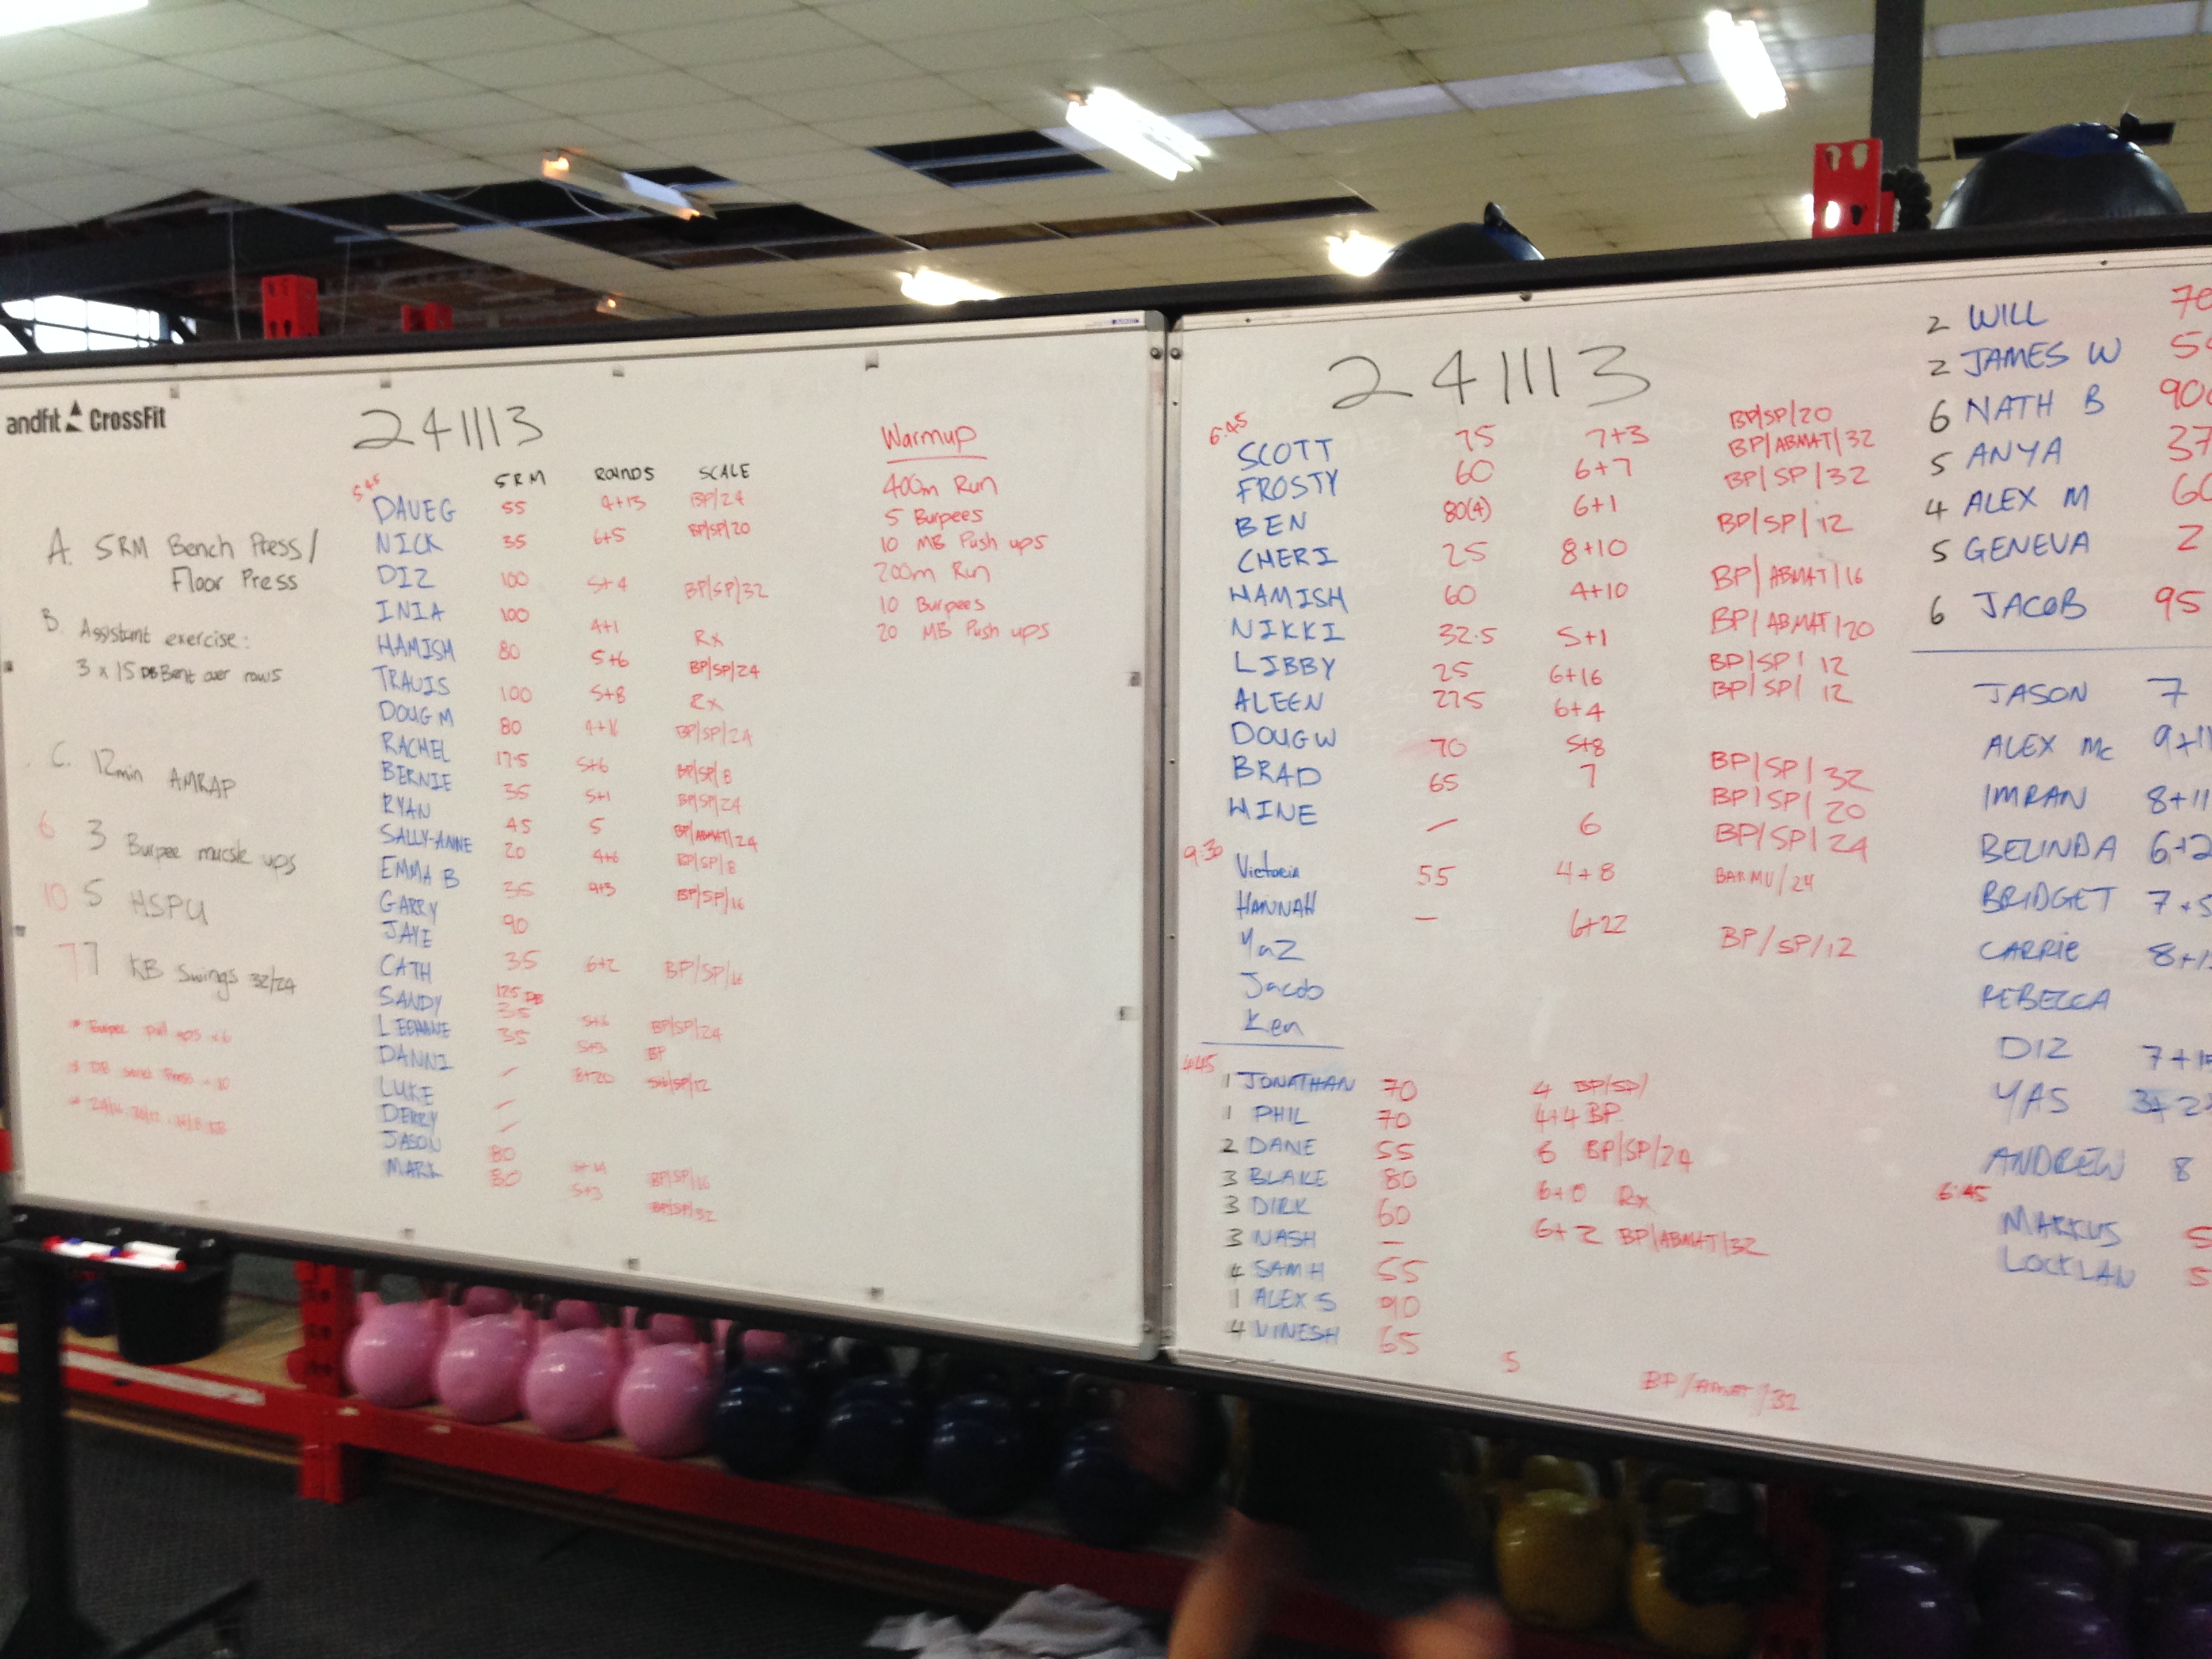 andfit CrossFit
241113
A. 5RM Bench Press/
Floor Press
B. Assistant exercise:
3 x 15 DB Bent over rows
C. 12min AMRAP
6 3 Burpee muscle ups
10 5 HSPU
7 KB Swings 32/24
5RM ROUNDS SCALE
5:45
DAVEG 55 4+13 BP/24
NICK 35 6+5 BP/SP/20
DIZ 100 5+4 BP/SP/32
INIA 100 4+1 Rx
HAMISH 80 5+6 BP/SP/24
TRAVIS 100 5+8 Rx
DOUG M 80 BP/SP/24
RACHEL 17.5 5+6 BP/SP/8
BERNIE 35 5+1 BP/SP/24
RYAN 45 5 BP/ABMAT/24
SALLY-ANNE 20 4+6 BP/SP/8
EMMA B 35 9+3 BP/SP/16
GARRY 90
JAYE
CATH 35 6+2 BP/SP/16
SANDY 12.5 DB
35
LEEHANNE 35 BP/SP/24
DANNI - BP
LUKE -
DERRY -
JASON 80 BP/SP/16
MARK 80 5+3 BP/SP/32
Warmup
400m Run
5 Burpees
10 MB Push ups
200m Run
10 Burpees
20 MB Push ups
241113
6:45
SCOTT 75 7+3 BP/SP/20
FROSTY 60 6+7 BP/ABMAT/32
BEN 80(4) 6+1 BP/SP/32
CHERI 25 8+10 BP/SP/12
HAMISH 60 4+10 BP/ABMAT/16
NIKKI 32.5 5+1 BP/ABMAT/20
LIBBY 25 6+16 BP/SP/12
ALEEN 27.5 6+4 BP/SP/12
DOUG W 70 5+8 BP/SP/32
BRAD 65 7 BP/SP/20
WINE - 6 BP/SP/24
9:30
Victoria 55 4+8 BAR MU/24
HANNAH - 6+22 BP/SP/12
Yaz
Jacob
Ken
4:45
1 JONATHAN 70 4 BP/SP/
1 PHIL 70 4+4 BP
2 DANE 55 6 BP/SP/24
3 BLAKE 80 6+0 Rx
3 DIRK 60 6+2 BP/ABMAT/32
3 NASH -
4 SAM H 55
1 ALEX S 90
4 VINESH 65
5 BP/ABMAT/32
2 WILL
2 JAMES W
6 NATH B
5 ANYA
4 ALEX M
5 GENEVA
6 JACOB 95
JASON 7
ALEX MC 9+11
IMRAN 8+11
BELINDA 6+2
BRIDGET 7+5
CARRIE
REBECCA
DIZ
YAS
ANDREW 8
6:45
MARKUS
LOCKLAN